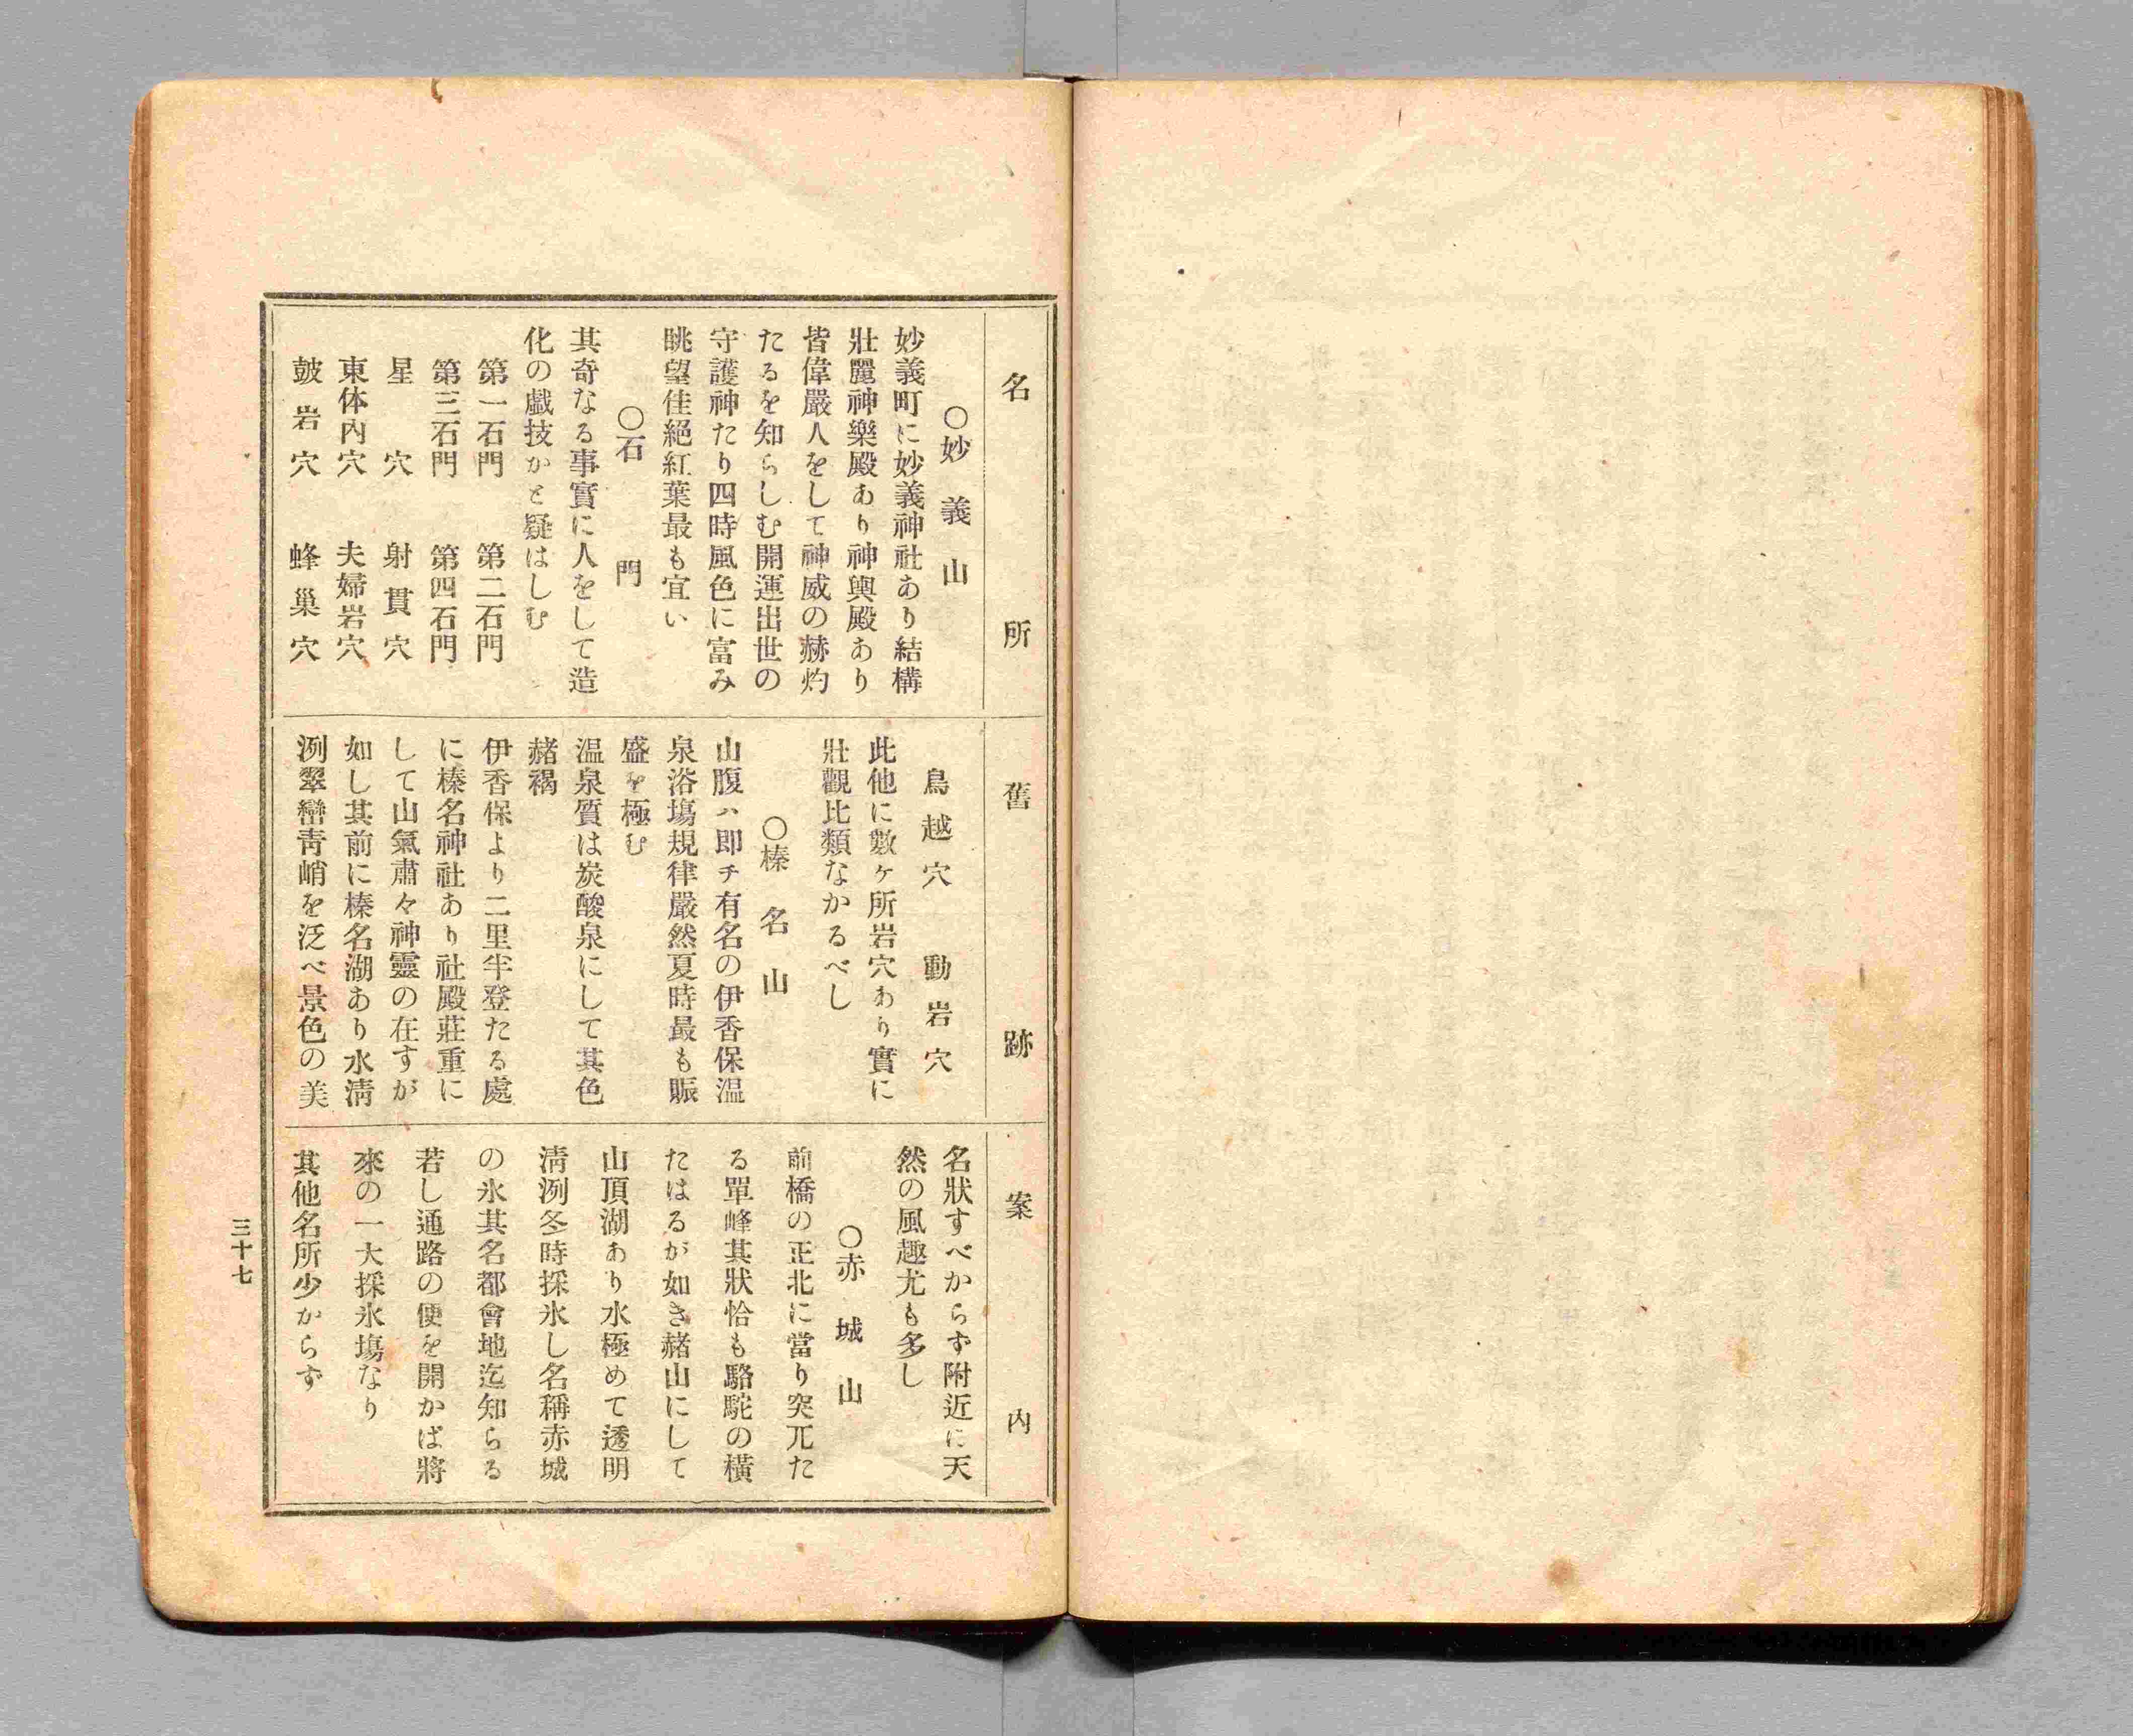 名所舊跡案内
○妙義山
妙義町に妙義神社あり結構
壯麗神樂殿あり神輿殿あり
皆偉嚴人をして神威の赫灼
たるを知らしむ開運出世の
守護神たり四時風色に富み
眺望佳絕紅葉最も宜い
○石門
其奇なる事實に人をして造
化の戯技かと疑はしむ
第一石門 第二石門
第三石門 第四石門
星穴 射貫穴
東体内穴 夫婦岩穴
皷岩穴 蜂巢穴
鳥越穴 動岩穴
此他に數ヶ所岩穴あり實に
壯觀比類なかるべし
○榛名山
山腹ハ即チ有名の伊香保温
泉浴塲規律嚴然夏時最も賑
盛を極む
温泉質は炭酸泉にして其色
赭褐
伊香保より二里半登たる處
に榛名神社あり社殿莊重に
して山氣肅々神靈の在すが
如し其前に榛名湖あり水淸
洌翠巒靑峭を泛べ景色の美
名狀すべからず附近に天
然の風趣尤も多し
○赤城山
前橋の正北に當り突兀た
る單峰其狀恰も駱駝の橫
たはるが如き赭山にして
山頂湖あり水極めて透明
淸洌冬時採氷し名稱赤城
の氷其名都會地迄知らる
若し通路の便を開かば將
來の一大採氷塲なり
其他名所少からず
三十七